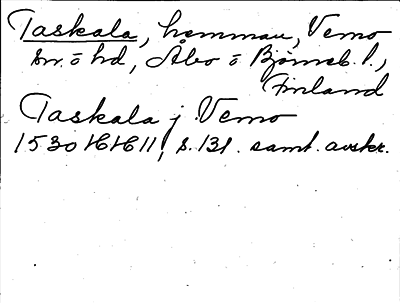 Taskala, hemman, Vemo
sn. o hd, Åbo o Björneb. l.,
Finland
Taskala j Vemo
1530 16/6 11, s. 131. samt. avskr.